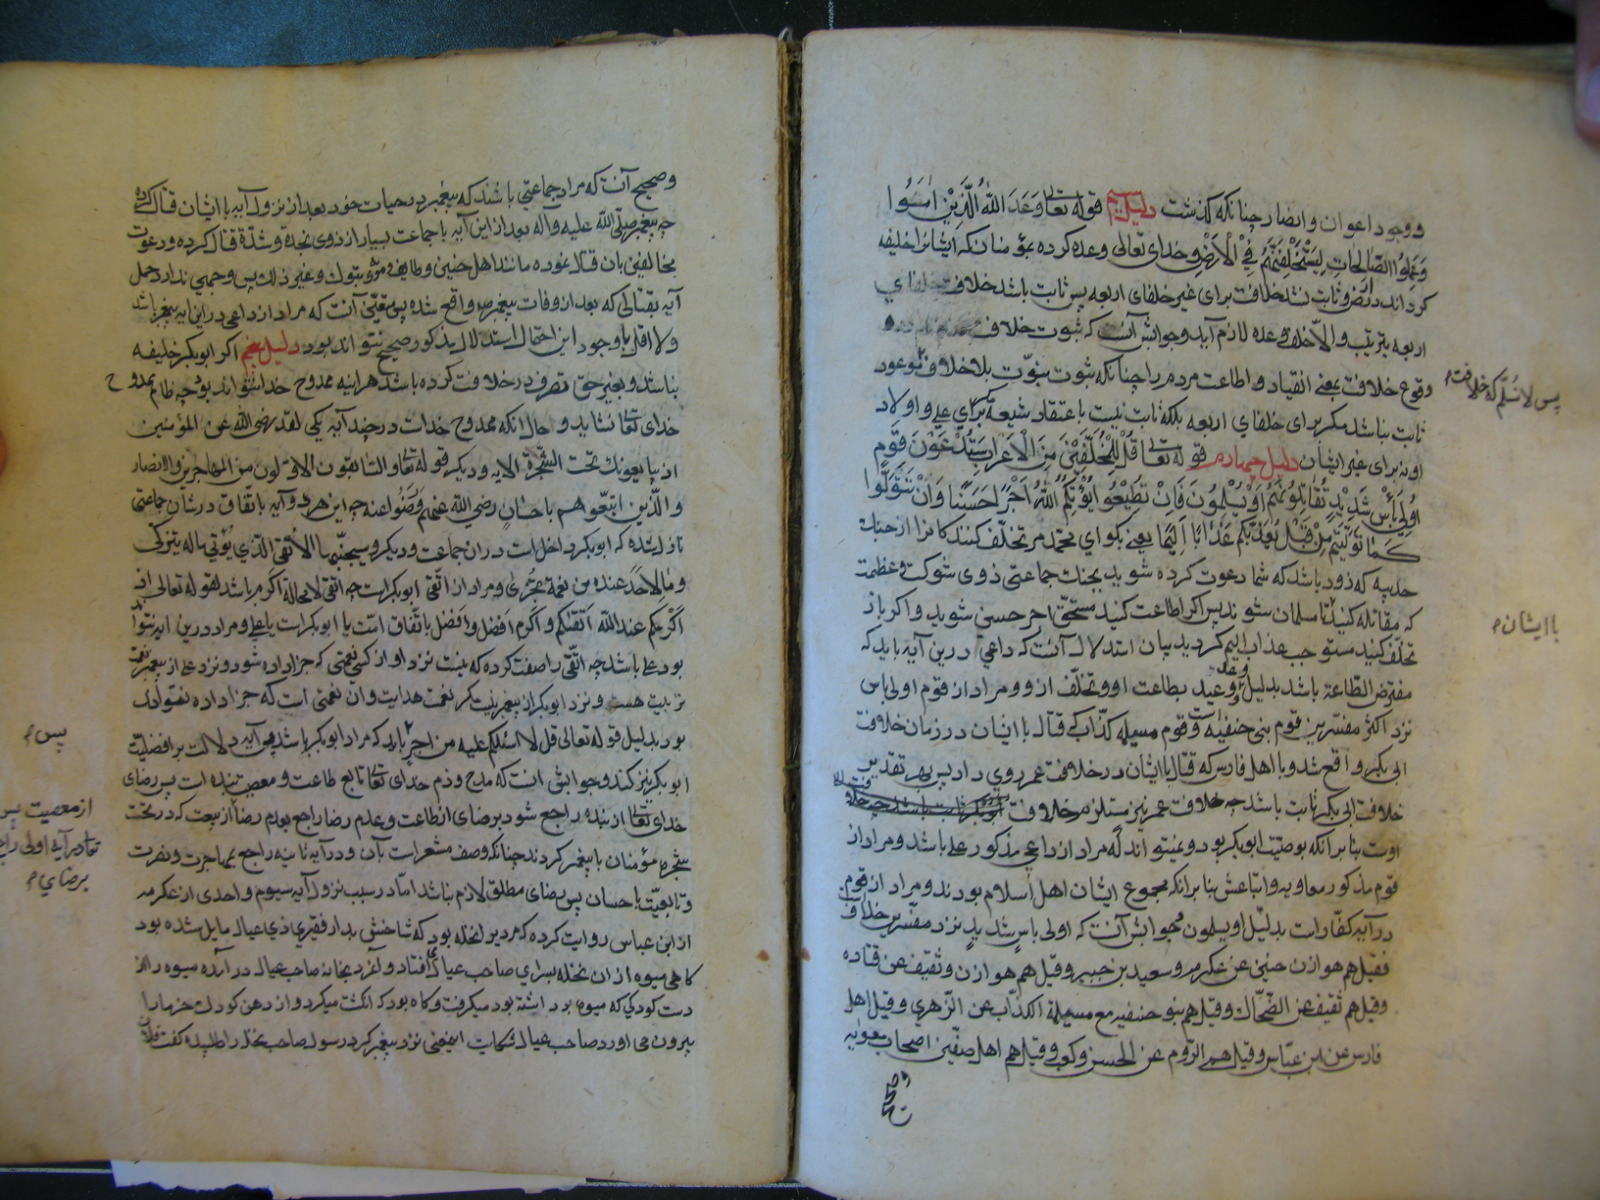 و وجود اعوان و انصار چنانکه کذشت دلیل سیم قوله تعالی وَعَدَ اللّٰهُ الَّذِیْنَ اٰمَنُوا
وَعَمِلُوا الصّٰالِحٰاتِ لِیَسْتَخْلِفَنَّهُم فِیْ الْاَرْضِ و خدای تعالی وعده کرده بمؤمنان که ایشانرا خلیفه
کرداند در زمین و ثابت نشد خلافت برای غیر خلفای اربعه پس ثابت باشد خلافت خلفای
اربعه بترتیب و الا خلاف وعده لازم آید و جوابش آن که ثبوت خلافت
وقوع خلافت بمعنی انقیاد و اطاعت مردم را چنانکه ثبوت نبوّت بلا خلاف موعود
پس لا نسلّم که خلافت
ثابت نباشد مکر برای خلفای اربعه بلکه ثابت نیست باعتقاد شیعه مکر برای علی و اولاد
او نه برای غیر ایشان دلیل چهارم قوله تعالی قُلْ لِلْمُخَلَّفِیْنَ مِنَ الْاَعْرٰابِ سَتُدْعَوْنَ قَوْمٍ
اُولِیْ بَأْسٍ شَدِیْدٍ تُقٰاتِلُوْنَهُمْ اَوْ یُسْلِمُونَ فَاِنْ تُطِیْعُوا یُؤْتِکُمُ اللّٰهُ اَجْرًا حَسَنًا وَ اِنْ تَتَوَلَّوا
کَمٰا تَوَلَّیْتُمْ مِنْ قَبْلُ یُعَذِّبْکُمْ عَذٰابًا اَلِیْمًا یعنی بکو ای محمد مر تخلّف کنندکانرا از جنک
حدیبیه که زود باشد که شما دعوت کرده شوید بجنک جماعتی ذوی شوکت و عظمت
که مقاتله کنید تا مسلمان شوند پس اکر اطاعت کنید مستحق اجر حسن شوید و اکر باز
با ایشان
تخلّف کنید مستوجب عذاب الیم کردید بیان استدلال آنست که داعی درین آیه باید که
مفترض الطّاعة باشد بدلیل وعد و وعید بطاعت او و تخلّف از او و مراد از قوم اولی باس
نزد اکثر مفسّرین قوم بنی حنیفه است و قوم مسیلمه کذّاب که قتال با ایشان در زمان خلافت
ابی بکر واقع شد و یا اهل فارس که قتال با ایشان در خلافت عمر روی داد پس بهر تقدیر
خلافت ابی بکر ثابت باشد چه خلافت عمر نیز مستلزم خلافت
اوست بنا بر آنکه بوصیّت ابوبکر بود و نمیتواند که مراد از داعی مذکور علی باشد و مراد از
قوم مذکور معاویه و اتباعش بنا بر آنکه مجموع ایشان اهل اسلام بودند و مراد از قوم
در آیه کفّار است بدلیل او یسلمون و جوابش آنست که اولی باس شدید نزد مفسّرین خلافست
فقیل هم هوازن حنین عن عکرمه و سعید بن جبیر و قیل هم هوازن و ثقیف عن قتاده
و قیل هم ثقیف عن الضّحّاک و قیل هم بنو حنیفه مع مسیلمة الکذّاب عن الزّهری و قیل اهل
فارس عن ابن عبّاس و قیل هم الرّوم عن الحسن و کعب و قیل هم اهل صفّین اصحاب معویه
و صحیح
و صحیح آنست که مراد جماعتی باشند که پیغمبر در حیات خود بعد از نزول آیه با ایشان قتال کرده
چه پیغمبر صلّی اللّه علیه و اله بعد از این آیه با جماعت بسیار از ذوی نجدة و شدّة قتال کرده و دعوت
مخالفین بان قتال نموده مانند اهل حنین و طایف و موته و تبوک و غیر ذلک پس وجهی ندارد حمل
آیه بقتالی که بعد از وفات پیغمبر ص واقع شده پس متعیّن آنست که مراد از داعی در این آیه پیغمبر باشد
و لا اقل با وجود این احتمال استدلال مذکور صحیح نتواند بود دلیل پنجم اکر ابوبکر خلیفه
نباشد و بغیر حق تصرف در خلافت کرده باشد هر اینه ممدوح خدا نتواند بود چه ظالم ممدوح
خدای تعالی نشاید و حال آنکه ممدوح خداست در چند آیه یکی لقد رضی اللّه عن المؤمنین
اذ یبایعونک تحت الشّجرة الایه و دیکر قوله تعالی و السّابقون الاوّلون من المهاجرین و الانصار
و الّذین اتّبعوهم باحسان رضی اللّه عنهم و رضوا عنه چه این هر دو آیه باتّفاق در شان جماعتی
نازل شده که ابوبکر داخل است در ان جماعت و دیکر و سیجنّبها الاتقی الّذی یؤتی ماله یتزکّی
و ما لاحد عنده من نعمة تجزی و مراد از اتقی ابوبکر است چه اتقی لا محالة اکرم باشد لقوله تعالی انّ
اکرمکم عند اللّه اتقیکم و اکرم افضل و افضل باتّفاق امّت یا ابوبکر است یا علی و مراد درین ایه نتواند
بود علی باشد چه اتقی را صفت کرده که نیست نزد او از کسی نعمتی که جزا داده شود و نزد علی از پیغمبر نعمت
تربیت هست و نزد ابوبکر از پیغمبر نیست مکر نعمت هدایت و ان نعمتی است که جزا داده نتواند
بود بدلیل قوله تعالی قل لا اسئلکم علیه من اجر پس باید که مراد ابوبکر باشد پس آیه دلالت بر افضلیّت
پس
ابوبکر نیز کند و جوابش انست که مدح و ذم خدای تعالی تابع طاعت و معصیت بنده است پس رضای
از معصیت پس
خدای تعالی از بنده راجع شود برضای از طاعت و عدم رضا راجع بعدم رضا از بیعت که در تحت
برضای
شجره مؤمنان با پیغمبر کردند چنانکه وصف مشعر است بآن و در آیه ثانیه راجع بمهاجرت و نصرت
و تابعیّت باحسان پس رضای مطلق لازم نباشد امّا در سبب نزول آیه سیوم واحدی از عکرمه
از ابن عباس روایت کرده که مردیرا نخله بود که شاخش بدار فقیری ذی عیال مایل شده بود
کاهی میوه از ان نخله بسرای صاحب عیال افتاد و آنمرد بخانه صاحب عیال درآمده میوه را از
دست کودکی که میوه برداشته بود میکرفت و کاه بود که انکشت میکرد و از دهن کودک خرما را
بیرون می اورد صاحب عیال شکایت اینمعنی نزد پیغمبر کرد رسول صاحب نخله را طلبیده کفت فلان